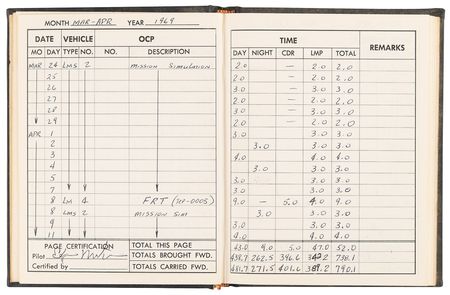 MONTH MAR-APR YEAR 1969
DATE VEHICLE OCP
MO DAY TYPE NO. NO. DESCRIPTION
MAR 24 LMS 2 MISSION SIMULATION
25
26
27
28
29
APR 1
2
3
4
7
8 LM 4 FRT (TCP-0005)
8 LMS 2 MISSION SIM
9
11
PAGE CERTIFICATION TOTAL THIS PAGE
Pilot TOTALS BROUGHT FWD.
Certified by TOTALS CARRIED FWD.
TIME REMARKS
DAY NIGHT CDR LMP TOTAL
2.0 — 2.0 2.0
2.0 — 2.0 2.0
3.0 — 3.0 3.0
2.0 — 2.0 2.0
2.0 — 2.0 2.0
3.0 3.0 3.0
3.0 3.0 3.0
3.0 3.0 3.0
4.0 4.0 4.0
3.0 3.0 3.0
3.0 3.0 3.0
3.0 3.0 3.0
9.0 — 5.0 4.0 9.0
3.0 3.0 3.0
3.0 3.0 3.0
4.0 4.0 4.0
43.0 9.0 5.0 47.0 52.0
438.7 262.5 396.6 738.1
481.7 271.5 401.6 790.1